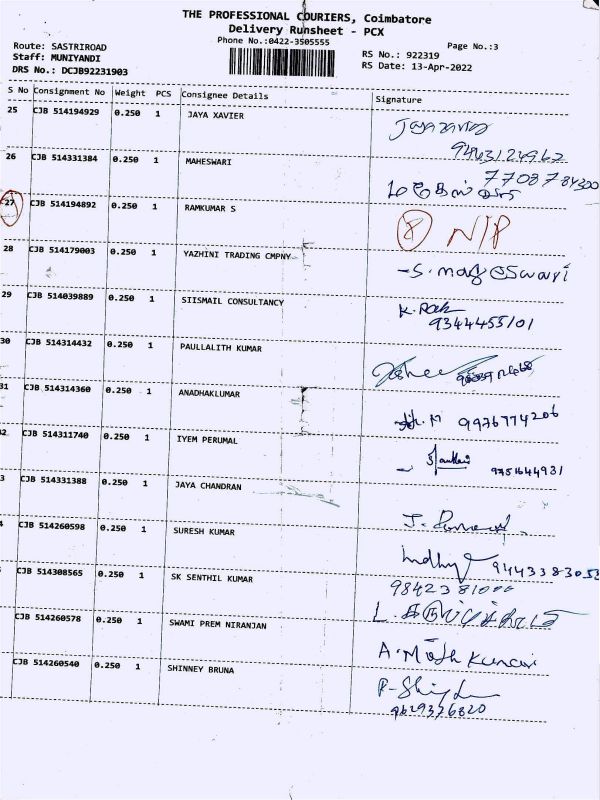 THE PROFESSIONAL COURIERS, Coimbatore
Delivery Runsheet - PCX
Phone No.:0422-3505555
Page No.:3
Route: SASTRIROAD
Staff: MUNIYANDI
RS No.: 922319
DRS No.: DCJB92231903
RS Date: 13-Apr-2022
S No Consignment No Weight PCS Consignee Details Signature
25 CJB 514194929 0.250 1 JAYA XAVIER
9443124962
26 CJB 514331384 0.250 1 MAHESWARI 7708784300
27 CJB 514194892 0.250 1 RAMKUMAR S 8 N/P
28 CJB 514179003 0.250 1 YAZHINI TRADING CMPNY
29 CJB 514039889 0.250 1 SIISMAIL CONSULTANCY
9344455101
30 CJB 514314432 0.250 1 PAULLALITH KUMAR
31 CJB 514314360 0.250 1 ANADHAKLUMAR 9976774206
2 CJB 514311740 0.250 1 IYEM PERUMAL 9751644931
3 CJB 514331388 0.250 1 JAYA CHANDRAN
4 CJB 514260598 0.250 1 SURESH KUMAR 9443383053
CJB 514308565 0.250 1 SK SENTHIL KUMAR
CJB 514260578 0.250 1 SWAMI PREM NIRANJAN
CJB 514260540 0.250 1 SHINNEY BRUNA
9629376820